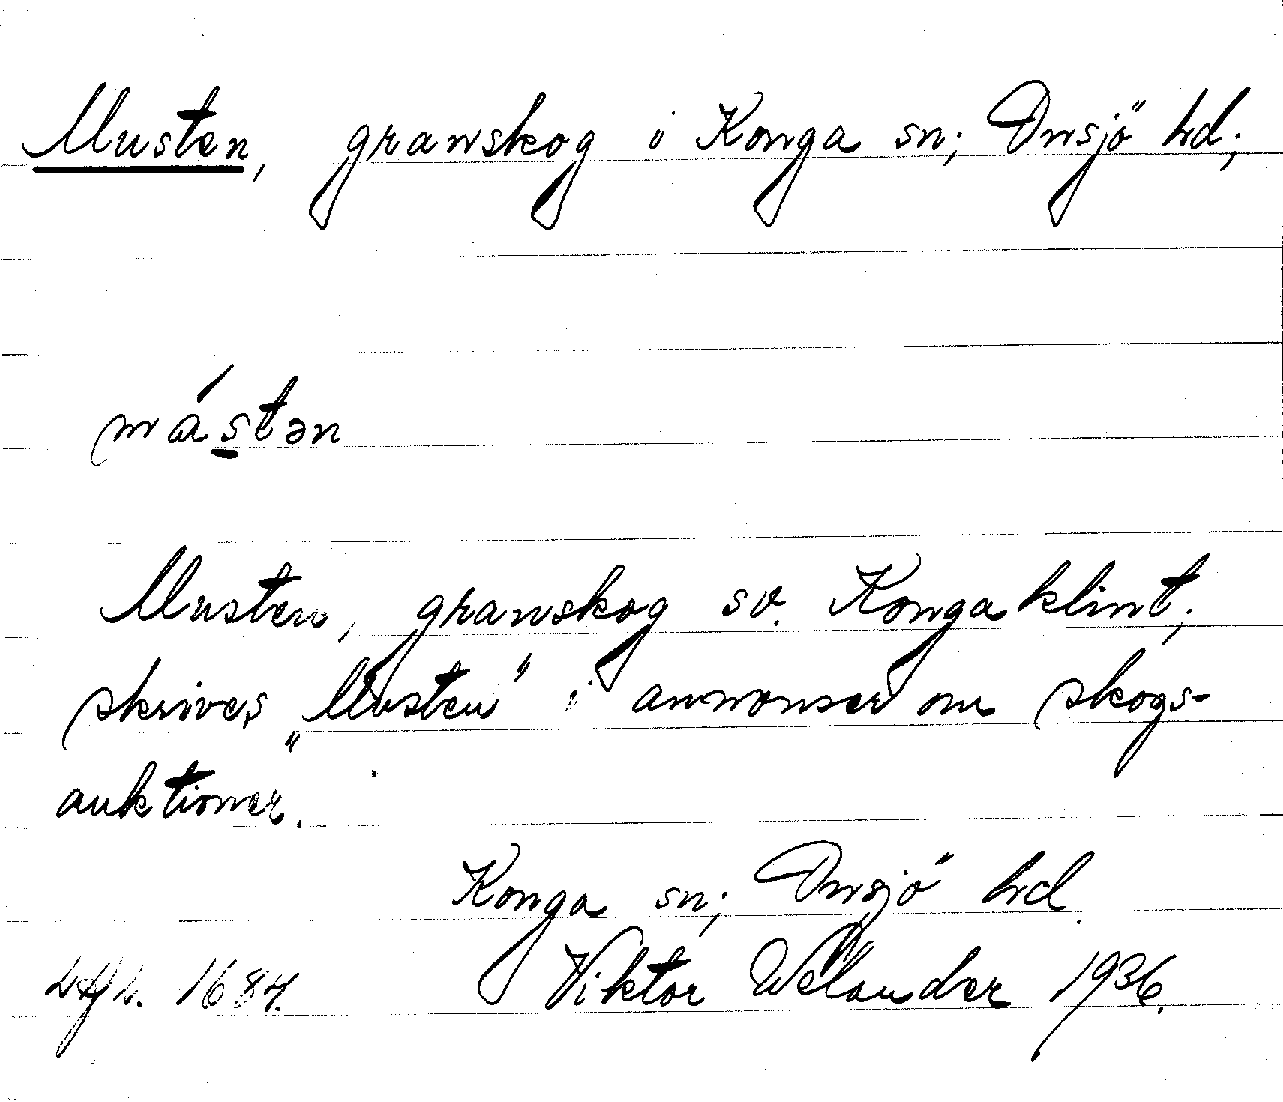 Musten, granskog i Konga sn; Onsjö hd;
mástən
Musten, granskog sv. Konga klint;
skrives „Musten" i annonser om skogs-
auktioner.
Konga sn; Onsjö hd.
1684. Viktor Welander 1936.